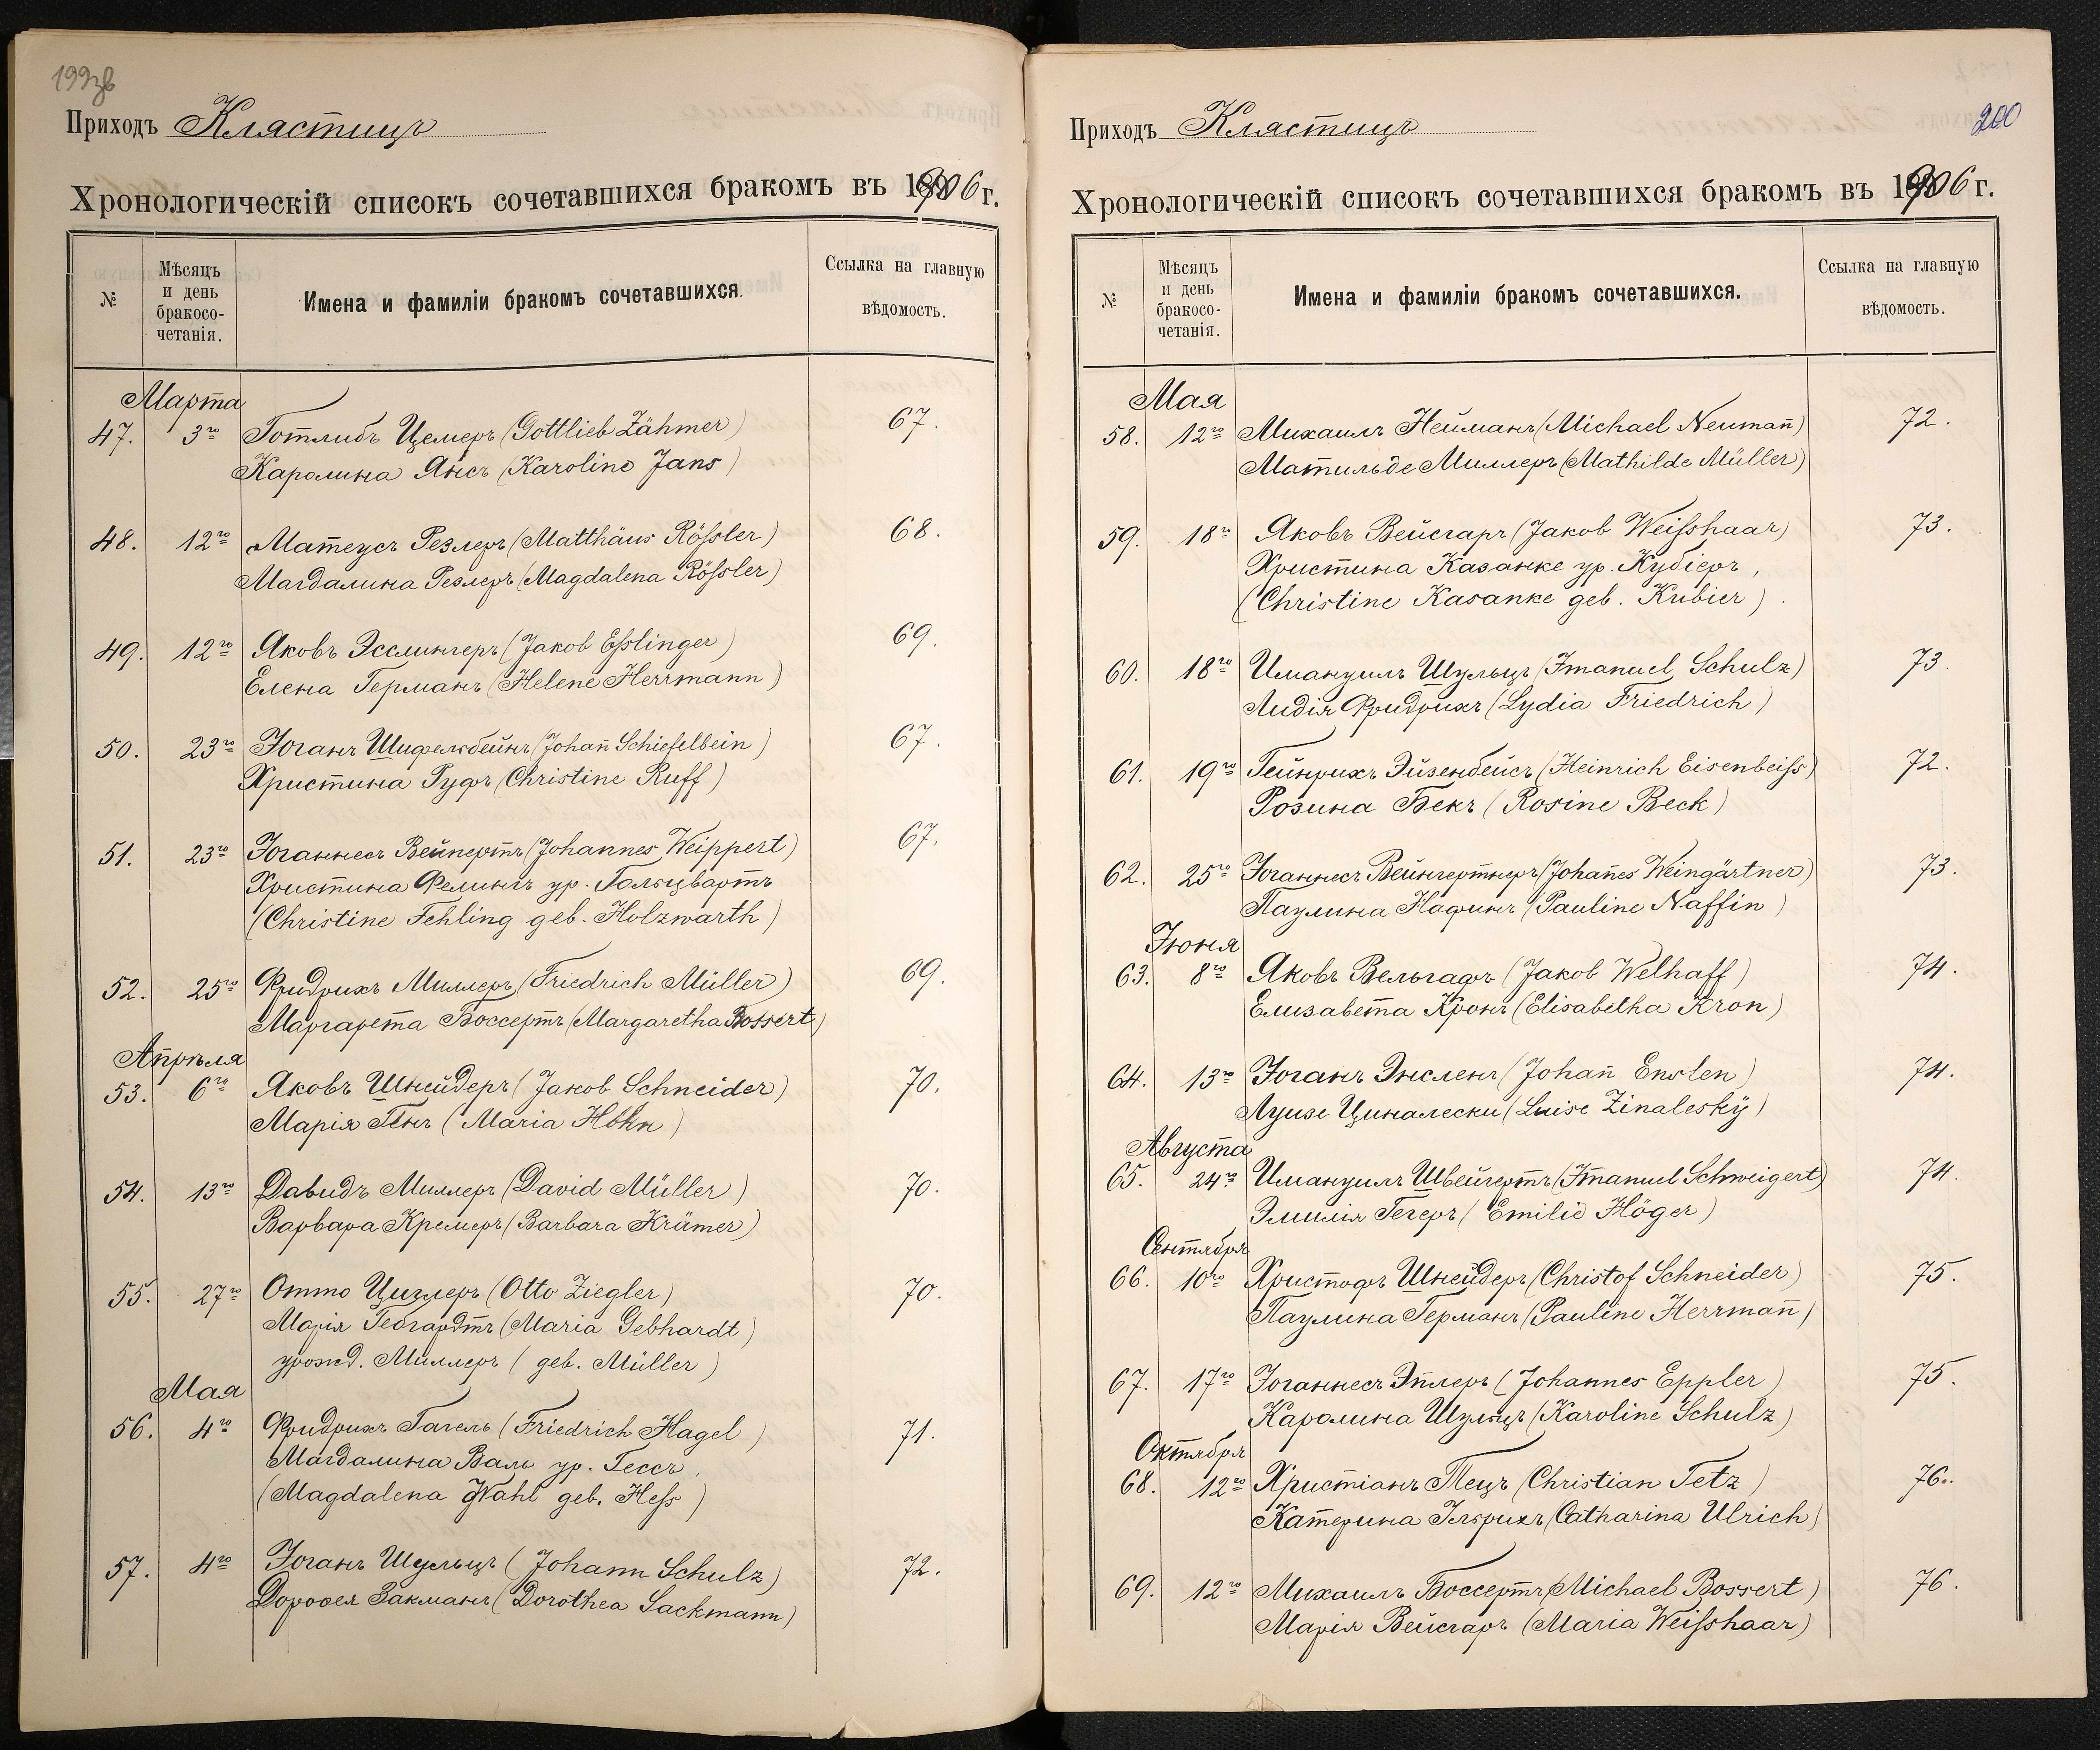 199об
Приходъ Клястицъ
Хронологическій списокъ сочетавшихся бракомъ въ 1906 г.
№
Мѣсяцъ
и день
бракосо-
четанія.
Имена и фамиліи бракомъ сочетавшихся.
Ссылка на главную
вѣдомость.
Марта
47. 3го Готлибъ Цемеръ (Gottlieb Zähmer) 67.
Каролина Янсъ (Karoline Jans)
48. 12го Матеусъ Резлеръ (Matthäus Rößler) 68.
Магдалина Резлеръ (Magdalena Rößler)
49. 12го Яковъ Эсслингеръ (Jakob Eßlinger) 69.
Елена Германъ (Helene Herrmann)
50. 23го Іоганъ Шифельбейнъ (Johan̄ Schiefelbein) 67.
Христина Руфъ (Christine Ruff)
51. 23го Іоганнесъ Вейпертъ (Johannes Weippert) 67.
Христина Фелингъ ур. Гольцвартъ
(Christine Fehling geb. Holzwarth)
52. 25го Фридрихъ Миллеръ (Friedrich Müller) 69.
Маргарета Боссертъ (Margaretha Bossert)
Апрѣля
53. 6го Яковъ Шнейдеръ (Jakob Schneider) 70.
Марія Генъ (Maria Höhn)
54. 13го Давидъ Миллеръ (David Müller) 70.
Варвара Кремеръ (Barbara Krämer)
55. 27го Отто Циглеръ (Otto Ziegler) 70.
Марія Гебгардтъ (Maria Gebhardt)
урожд. Миллеръ (geb. Müller)
Мая
56. 4го Фридрихъ Гагель (Friedrich Hagel) 71.
Магдалина Валь ур. Гессъ,
(Magdalena Wahl geb. Heß)
57. 4го Іоганъ Шульцъ (Johann Schulz) 72.
Доροθея Закманъ (Dorothea Sackmann)
200
Приходъ Клястицъ
Хронологическій списокъ сочетавшихся бракомъ въ 1906 г.
№
Мѣсяцъ
и день
бракосо-
четанія.
Имена и фамиліи бракомъ сочетавшихся.
Ссылка на главную
вѣдомость.
Мая
58. 12го Михаилъ Нейманъ (Michael Neuman̄) 72.
Матильде Миллеръ (Mathilde Müller)
59. 18го Яковъ Вейсгаръ (Jakob Weißhaar) 73.
Христина Казанке ур. Кубіеръ,
(Christine Kasanke geb. Kubier).
60. 18го Имануилъ Шульцъ (Imanuel Schulz) 73.
Лидія Фридрихъ (Lydia Friedrich)
61. 19го Гейнрихъ Эйзенбейсъ (Heinrich Eisenbeiß) 72.
Розина Бекъ (Rosine Beck)
62. 25го Іоганнесъ Вейнгертнеръ (Johan̄es Weingärtner) 73.
Паулина Нафинъ (Pauline Naffin)
Іюня
63. 8го Яковъ Вельгафъ (Jakob Welhaff) 74.
Елизавета Кронъ (Elisabetha Kron)
64. 13го Іоганъ Энсленъ (Johan̄ Enslen) 74.
Луизе Циналески (Luise Zinalesky)
Августа
65. 24го Имануилъ Швейгертъ (Imanuel Schweigert) 74.
Эмилія Гегеръ (Emilie Höger)
Сентября
66. 10го Христофъ Шнейдеръ (Christof Schneider) 75.
Паулина Германъ (Pauline Herrman̄)
67. 17го Іоганнесъ Эплеръ (Johannes Eppler) 75.
Каролина Шульцъ (Karoline Schulz)
Октября
68. 12го Христіанъ Тецъ (Christian Tetz) 76.
Катерина Ульрихъ (Catharina Ulrich)
69. 12го Михаилъ Боссертъ (Michael Bossert) 76.
Марія Вейсгаръ (Maria Weißhaar)